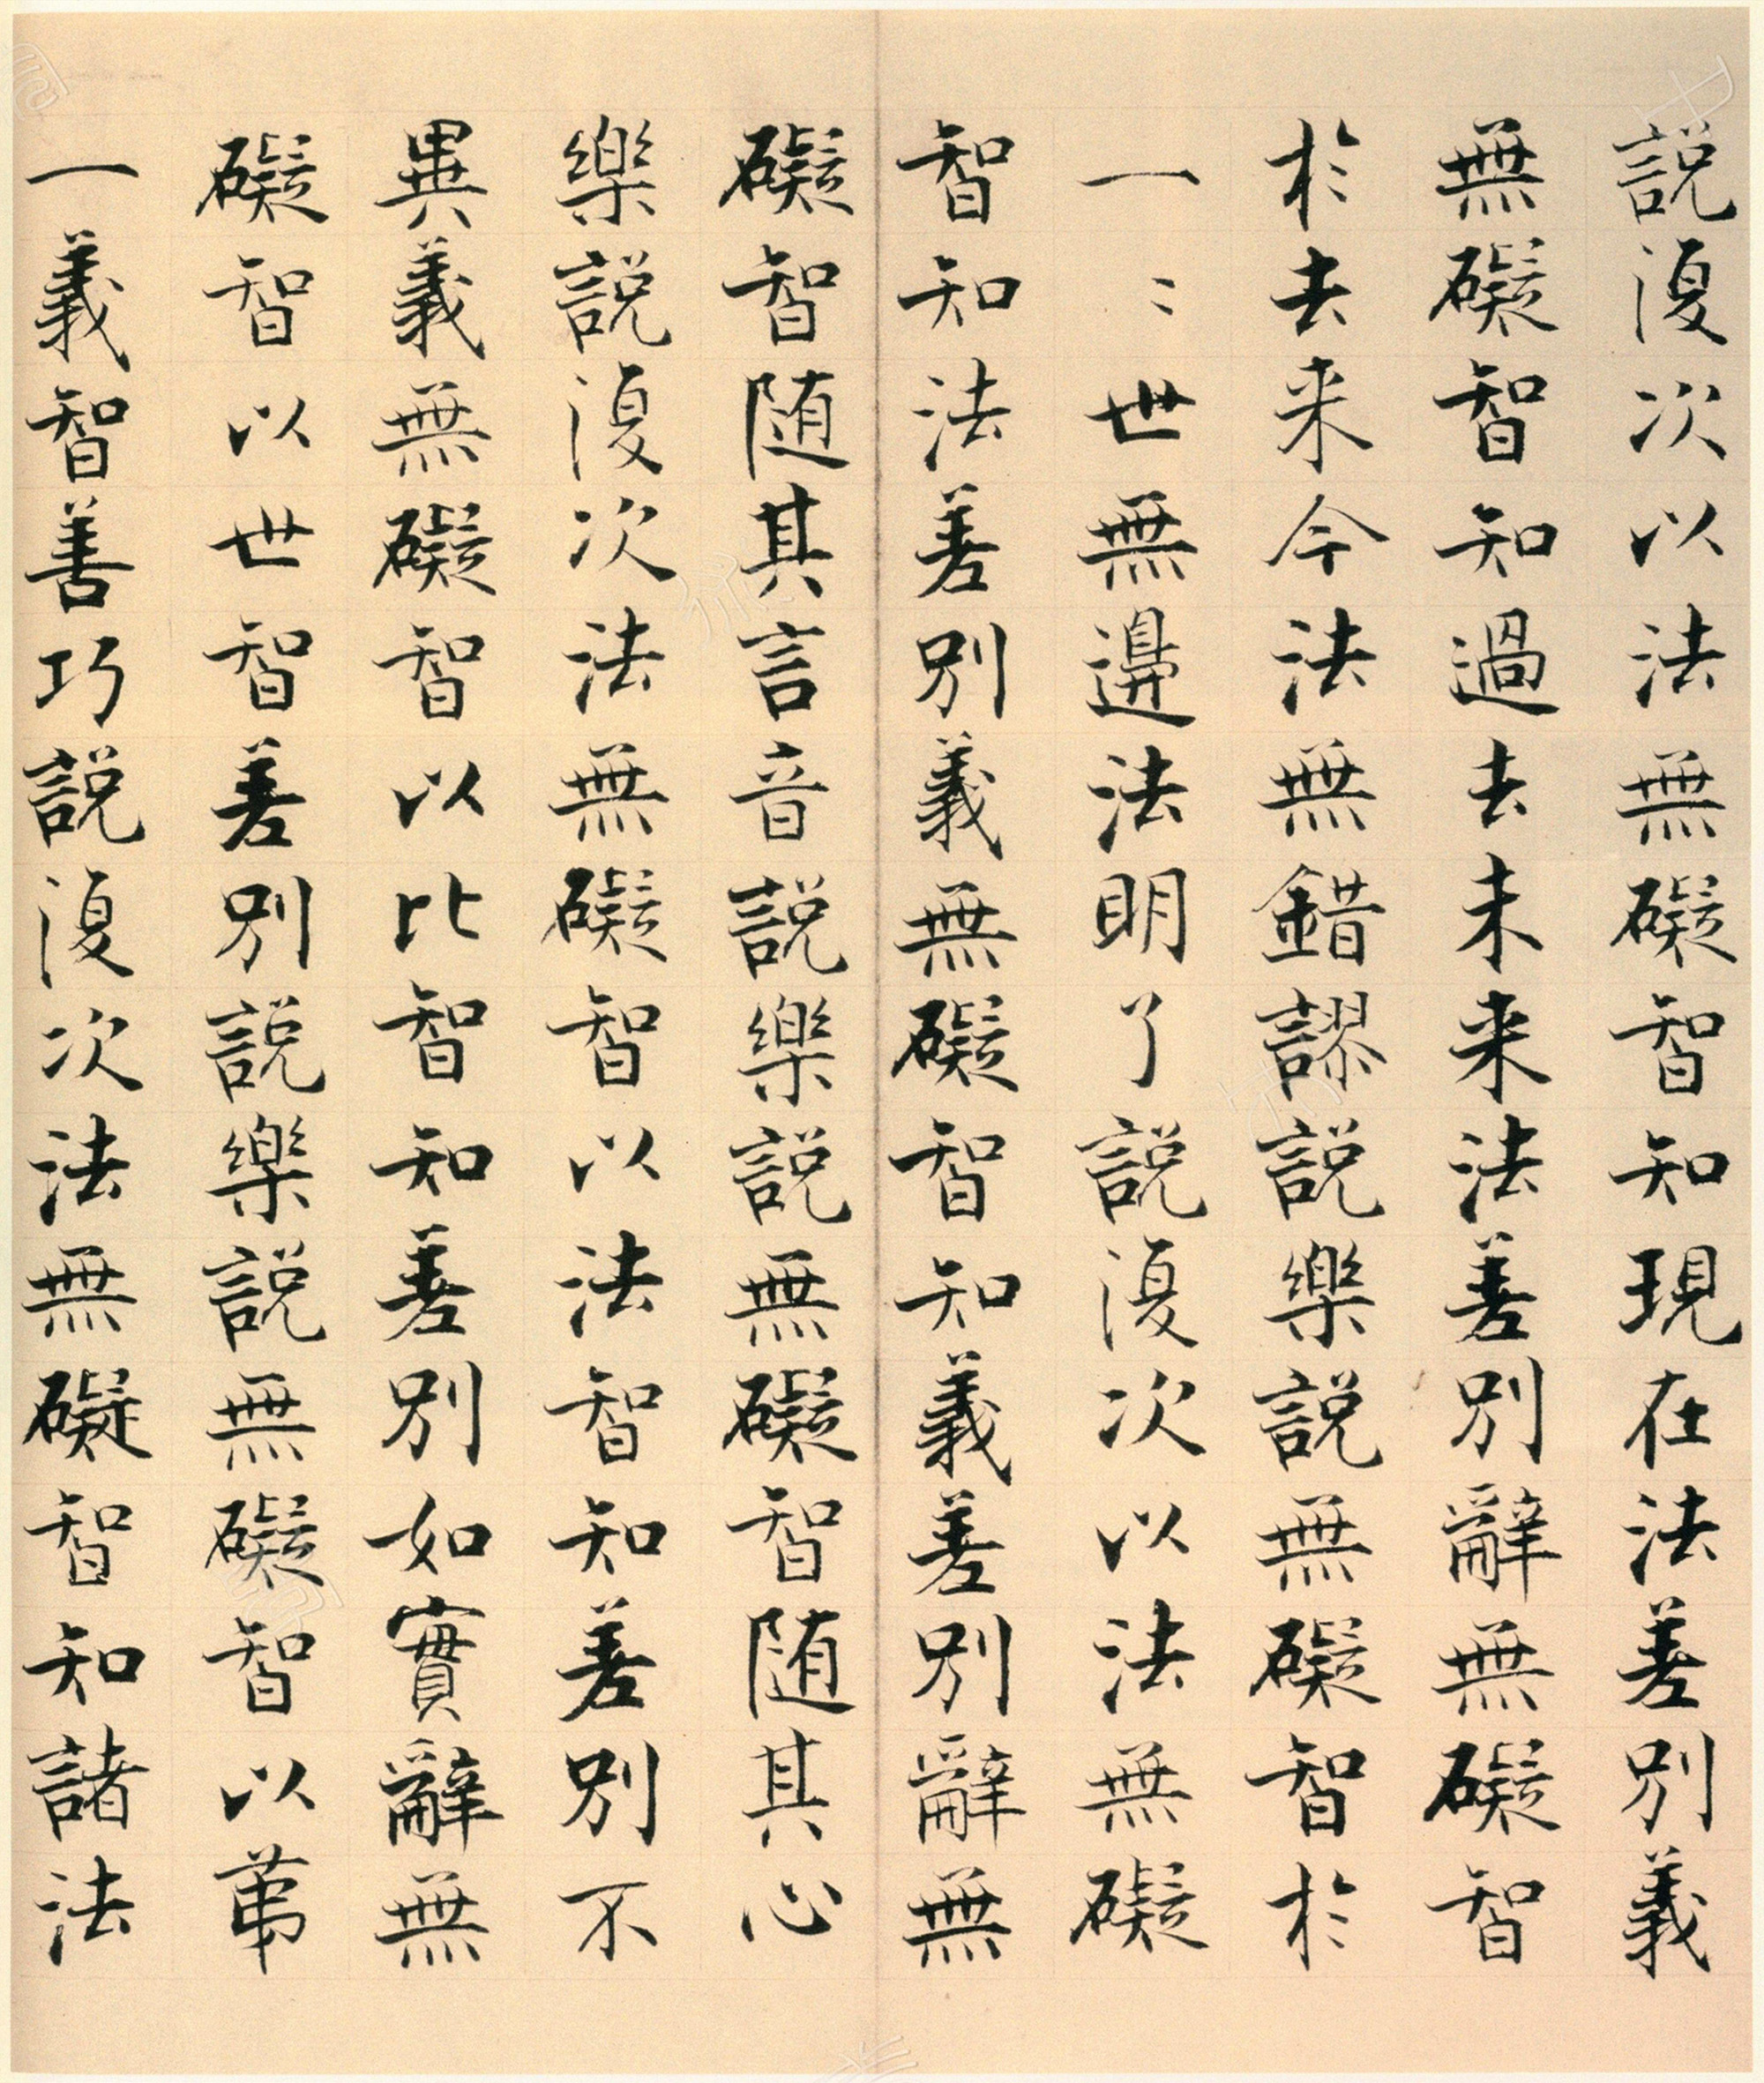 說復次以法無礙智知現在法差別義
無礙智知過去未来法差別辭無礙智
於去来今法無錯謬說樂說無礙智於
一〻世無邊法明了說復次以法無礙
智知法差別義無礙智知義差別辭無
礙智随其言音說樂說無礙智随其心
樂說復次法無礙智以法智知差別不
異義無礙智以比智知差別如實辭無
礙智以世智差別說樂說無礙智以苐
一義智善巧說復次法無礙智知諸法